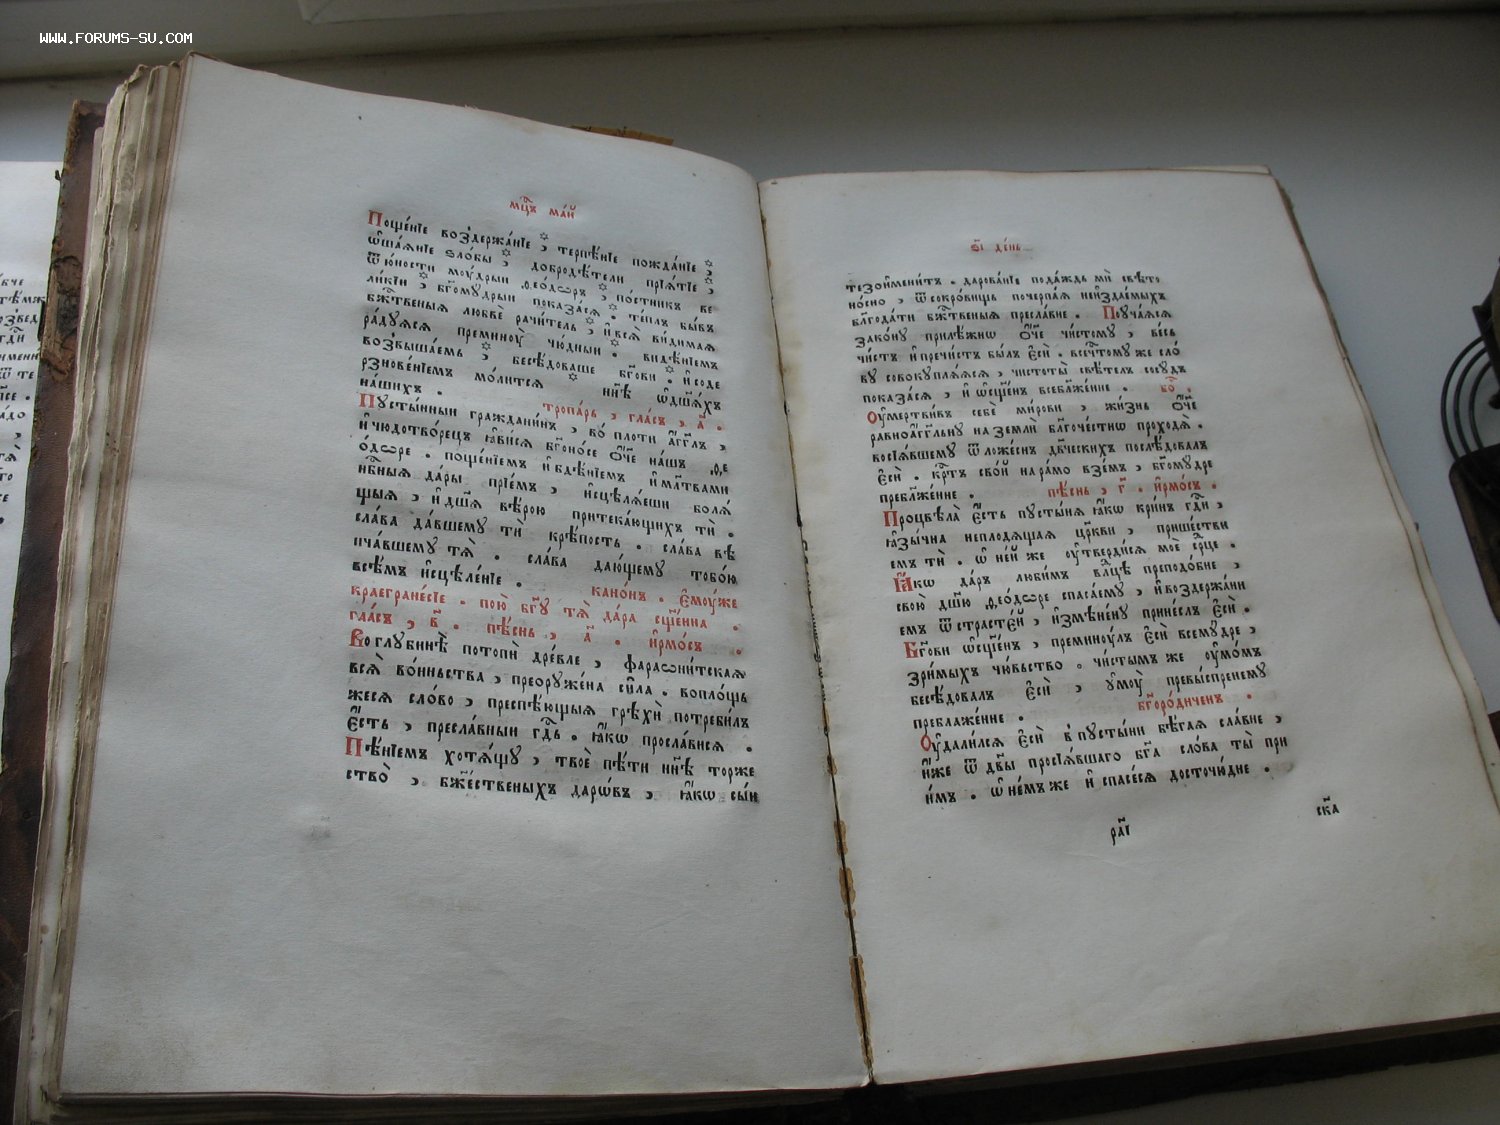 WWW.FORUMS-SU.COM
мц҃ъ ма́й
Поще́нїе воздержа́нїе , терпѣ́нїе пожда́нїе ,
ѿша́янїе ѕло́бы , добродѣ́тели прїя́тїе ,
ѿ ю́ности мꙋ́дрыи ѳео́дѡръ , по́стникъ ве
ли́кїи , бг҃омꙋ́дрыи показа́ся . те́плъ бы́въ
бж҃твеныя любвѐ рачи́тель , и҆ всѧ̀ ви́димая
ра́дꙋяся преминꙋ̀ чю́дныи . ви́дѣнїемъ
возвыша́емь , бесѣ́доваше бг҃ови . и҆ соде
рзнове́нїемъ мо́лится нн҃ѣ ѡ҆ дш҃а́хъ
на́шихъ . тропа́рь , гла́съ , а҃ .
Пꙋсты́нныи граждани́нъ , во́ плоти а҆́гг҃лъ ,
и҆ чюдотво́рецъ ꙗ҆ви́ся бг҃оно́се ѻ҆́ч҃е на́шъ ѳе
о́дѡре . поще́нїемъ и҆ бдѣ́нїемъ и҆ мл҃твами
нб҃ныя да́ры прїе́мъ , и҆сцѣля́еши боля́
щыя , и҆ дш҃а вѣ́рою притека́ющихъ тѝ .
сла́ва да́вшемꙋ тѝ крѣ́пость . сла́ва вѣ
нча́вшемꙋ тѧ̀ . сла́ва даю́щемꙋ тобо́ю
всѣ́мъ и҆сцѣле́нїе . кано́нъ . є҆мꙋ́же
краегране́сїе . пою̀ бг҃ꙋ тѧ̀ да́ра сщ҃е́нна .
гла́съ , в҃ . пѣ́снь , а҃ . і҆рмо́съ .
Во глꙋбинѣ̀ потопѝ дре́вле , фарасѡни́тская
всѧ̀ во́иньства , преорꙋже́на си́ла . воплощь
жеся сло́во , преспѣ́ющыя грѣхѝ потреби́лъ
є҆́сть , пресла́вныи гд҃ь . ꙗ҆́кѡ просла́вися .
Пѣ́нїемъ хотя́щꙋ , твоѐ пѣ́ти нн҃ѣ торже
ство̀ , бж҃е́ственыхъ даро́въ , ꙗ҆́кѡ сы́и
в҃і де́нь
тезоимени́тъ . дарова́нїе пода́ждь мѝ свѣто
но́сно , ѿ сокро́вищь почерпа́я неиздае́мыхъ
благода́ти бж҃твеныя пресла́вне . Поꙋча́яся
зако́нꙋ прилѣ́жнѡ ѻ҆́ч҃е чи́стомꙋ , ве́сь
чи́стъ и҆ пречи́стъ бы́лъ є҆сѝ . всечⷭ҇томꙋ же сло́
вꙋ совокꙋпля́яся , чистоты̀ свѣ́телъ сосꙋ́дъ
показа́ся , и҆ ѡ҆сщ҃е́нъ всеблаже́нне . бо҃ .
Оу҆мертви́въ себѐ ми́рови , жи́знь ѻ҆́ч҃е
равноа́гг҃льнꙋ на землѝ бл҃гоче́стнѡ проходя̀ .
восїя́вшемꙋ ѿ ложе́снъ дв҃ческихъ послѣ́довалъ
є҆сѝ . крⷭ҇тъ сво́й на ра́мо взе́мъ , бг҃омꙋ́дре
преблаже́нне . пѣ́снь , г҃ . і҆рмо́съ .
Процвѣла̀ є҆́сть пꙋсты́ня ꙗ҆́кѡ кри́нъ гд҃и ,
ꙗ҆зы́чна неплодя́щая цр҃кви , прише́стви
емъ тѝ . ѡ҆ не́й же ᲂу҆тверди́ся моѐ ср҃це .
Ꙗ҆́кѡ да́ръ люби́мъ вл҃цѣ преподо́бне ,
свою̀ дш҃ꙋ ѳео́дѡре спаса́емꙋ , и҆ воздержа́ни
емъ ѿ страсте́й , и҆змѣ́ненꙋ прине́слъ є҆сѝ .
Бг҃ови ѡ҆сщ҃е́нъ , преминꙋ́лъ є҆сѝ всемꙋ́дре ,
зри́мыхъ чю́вьство . чи́стымъ же ᲂу҆мо́мъ
бесѣ́довалъ є҆сѝ , ᲂу҆мꙋ̀ превы́спренемꙋ
преблаже́нне . бг҃оро́диченъ .
Оу҆дали́лся є҆сѝ в пꙋсты́ни бѣ́гая сла́вне ,
и҆́же ѿ дв҃ы просїя́вшаго бг҃а сло́ва ты̀ при
и҆́мъ . ѡ҆ не́мъ же и҆ спасе́ся досточи́дне .
ра҃і
ск҃а